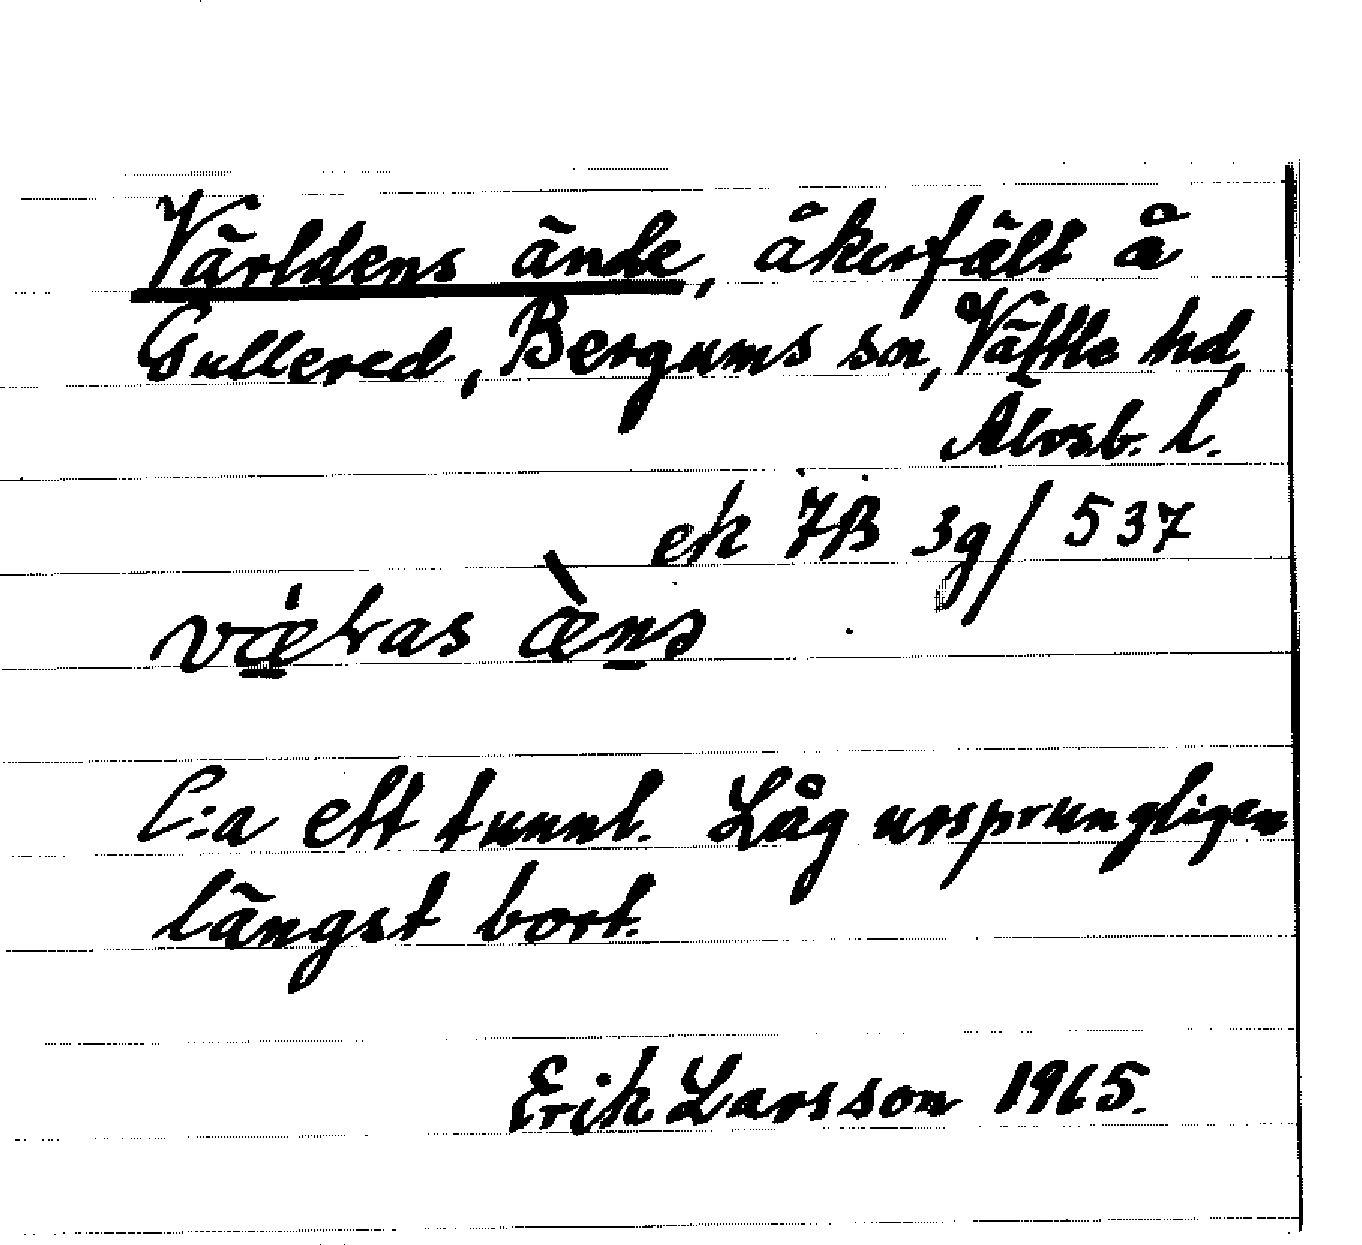 Världens ände, åkerfält å
Gullered, Bergums sn, Vättle hd,
Älvsb. l.
ek 7B 3g/537
C:a ett tunnl. Låg ursprungligen
längst bort.
Erik Larsson 1965.